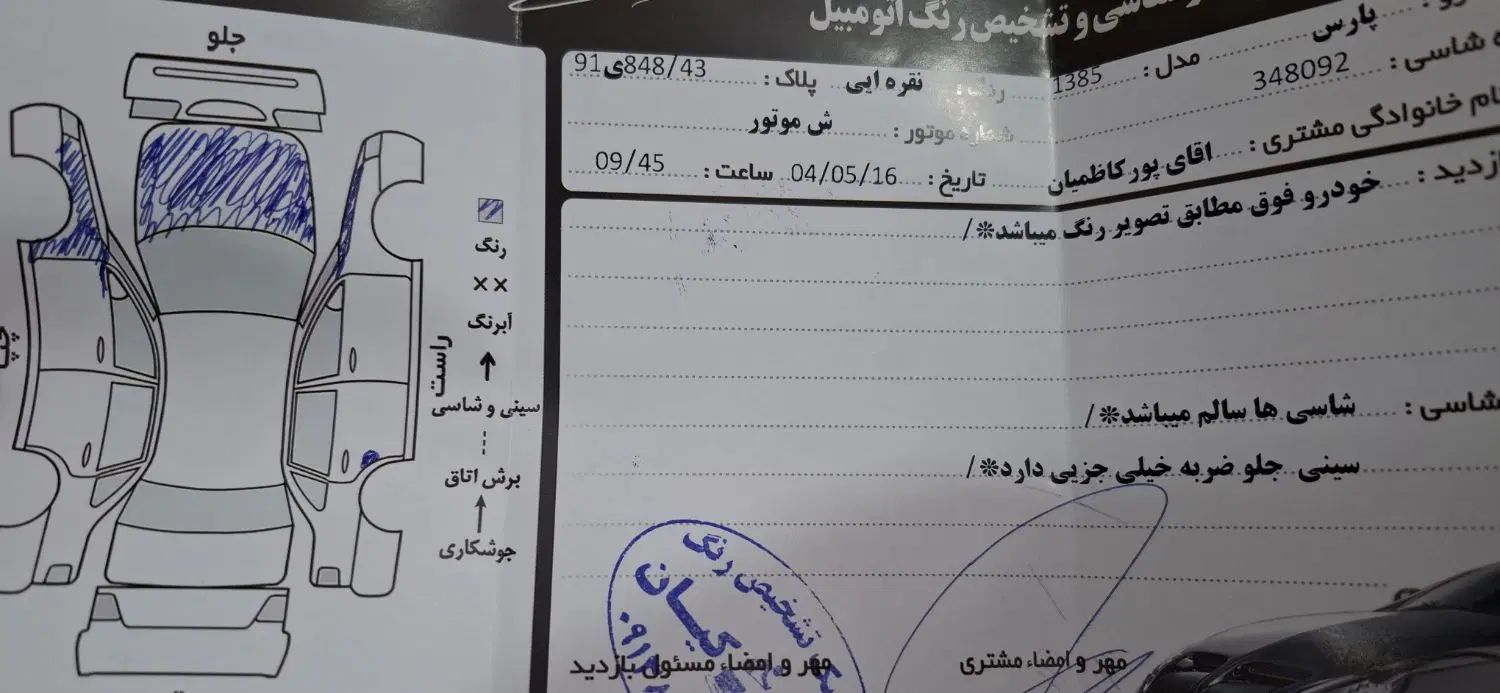 شاسی و تشخیص رنگ اتومبیل
پارس مدل : 1385 رنگ : نقره ایی پلاک : 91ی848/43
شاسی : 348092
شماره موتور : ش موتور
نام خانوادگی مشتری : اقای پور کاظمیان
تاریخ : 04/05/16 ساعت : 09/45
خودرو فوق مطابق تصویر رنگ میباشد*/
شاسی : شاسی ها سالم میباشد*/
سینی جلو ضربه خیلی جزیی دارد*/
مهر و امضاء مشتری
مهر و امضاء مسئول بازدید
تشخیص رنگ
کیان
جلو
راست
چپ
رنگ
××
آبرنگ
سینی و شاسی
برش اتاق
جوشکاری